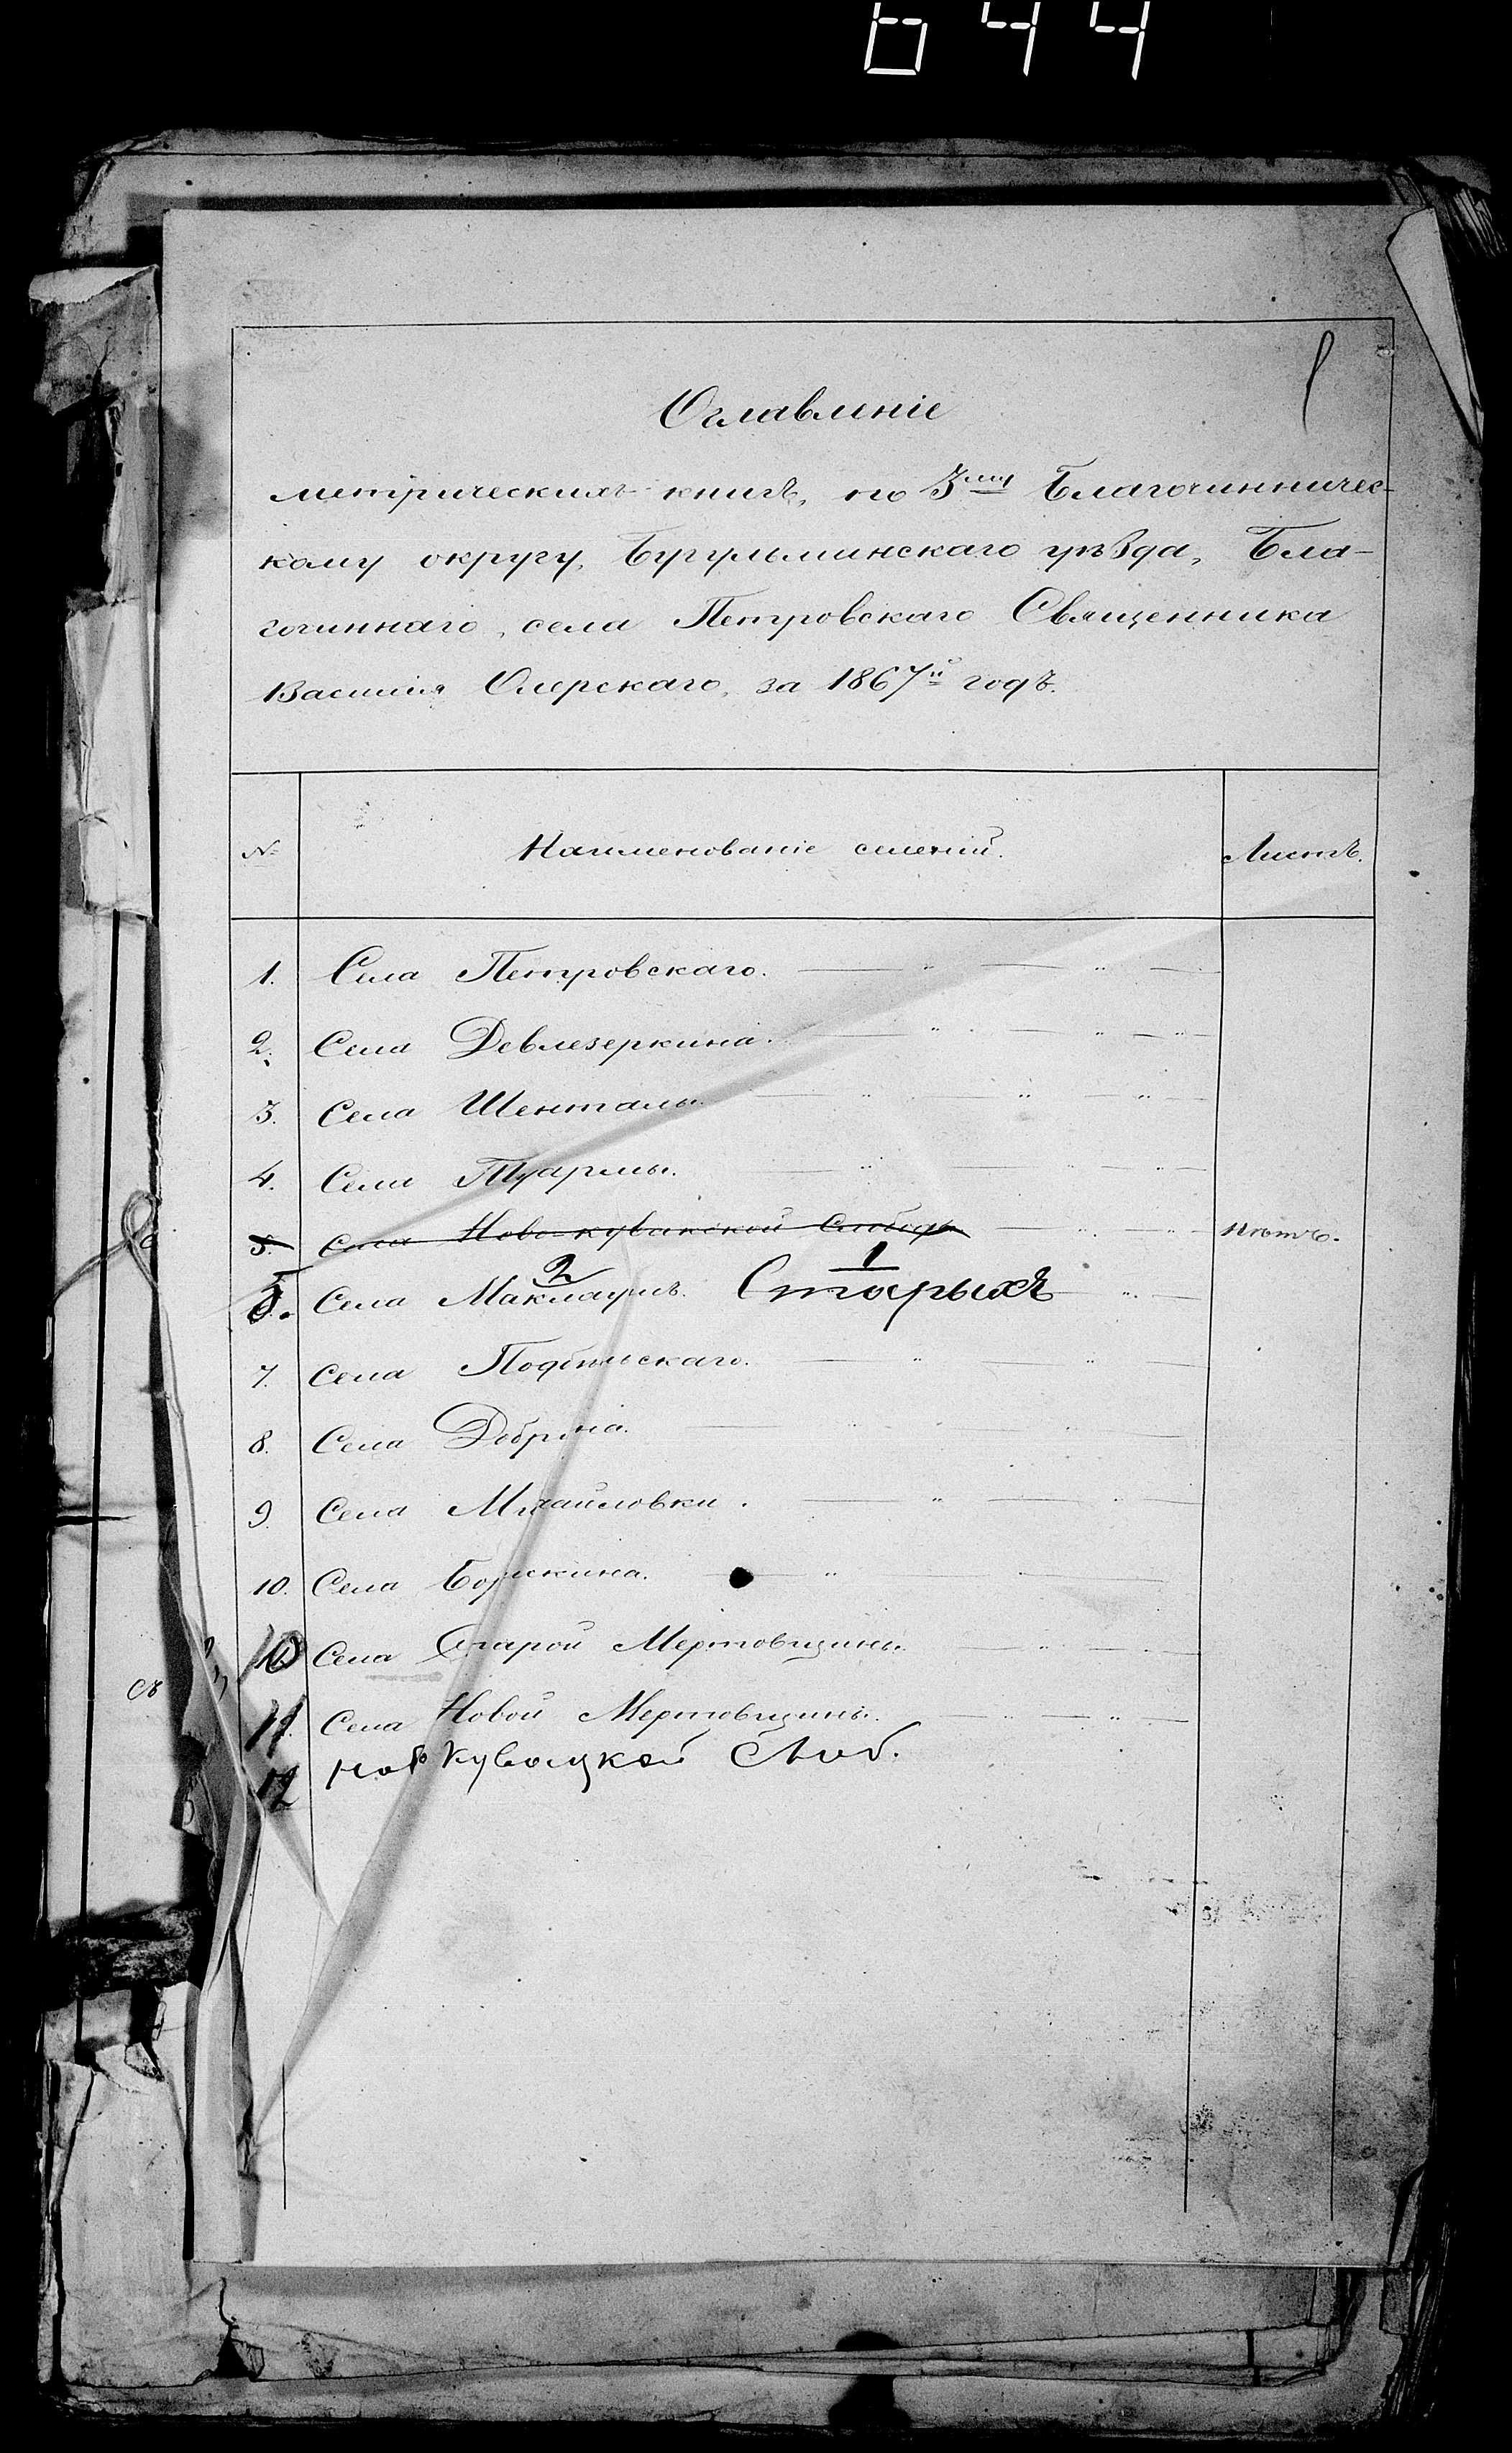 644
Оглавленіе
метрическихъ книгъ, по 3му Благочинничес-
кому округу, Бугульминскаго уѣзда, Бла-
гочиннаго, села Петровскаго Священника
Василія Озерскаго, за 1867й годъ.
№ Наименованіе селеній. Листъ.
1. Села Петровскаго.
2. Села Девлезеркина.
3. Села Шенталы.
4. Села Туармы.
5. Села Ново-кувакской Слободы нѣтъ.
2 1
5. Села Маклаушъ. Старыхъ
7. Села Подбѣльскаго.
8. Села Добрина.
9. Села Михайловки.
10. Села Борискина.
10 Села Старой Мертовщины.
11. Села Новой Мертовщины.
12 Ново Кувацкой Слоб.